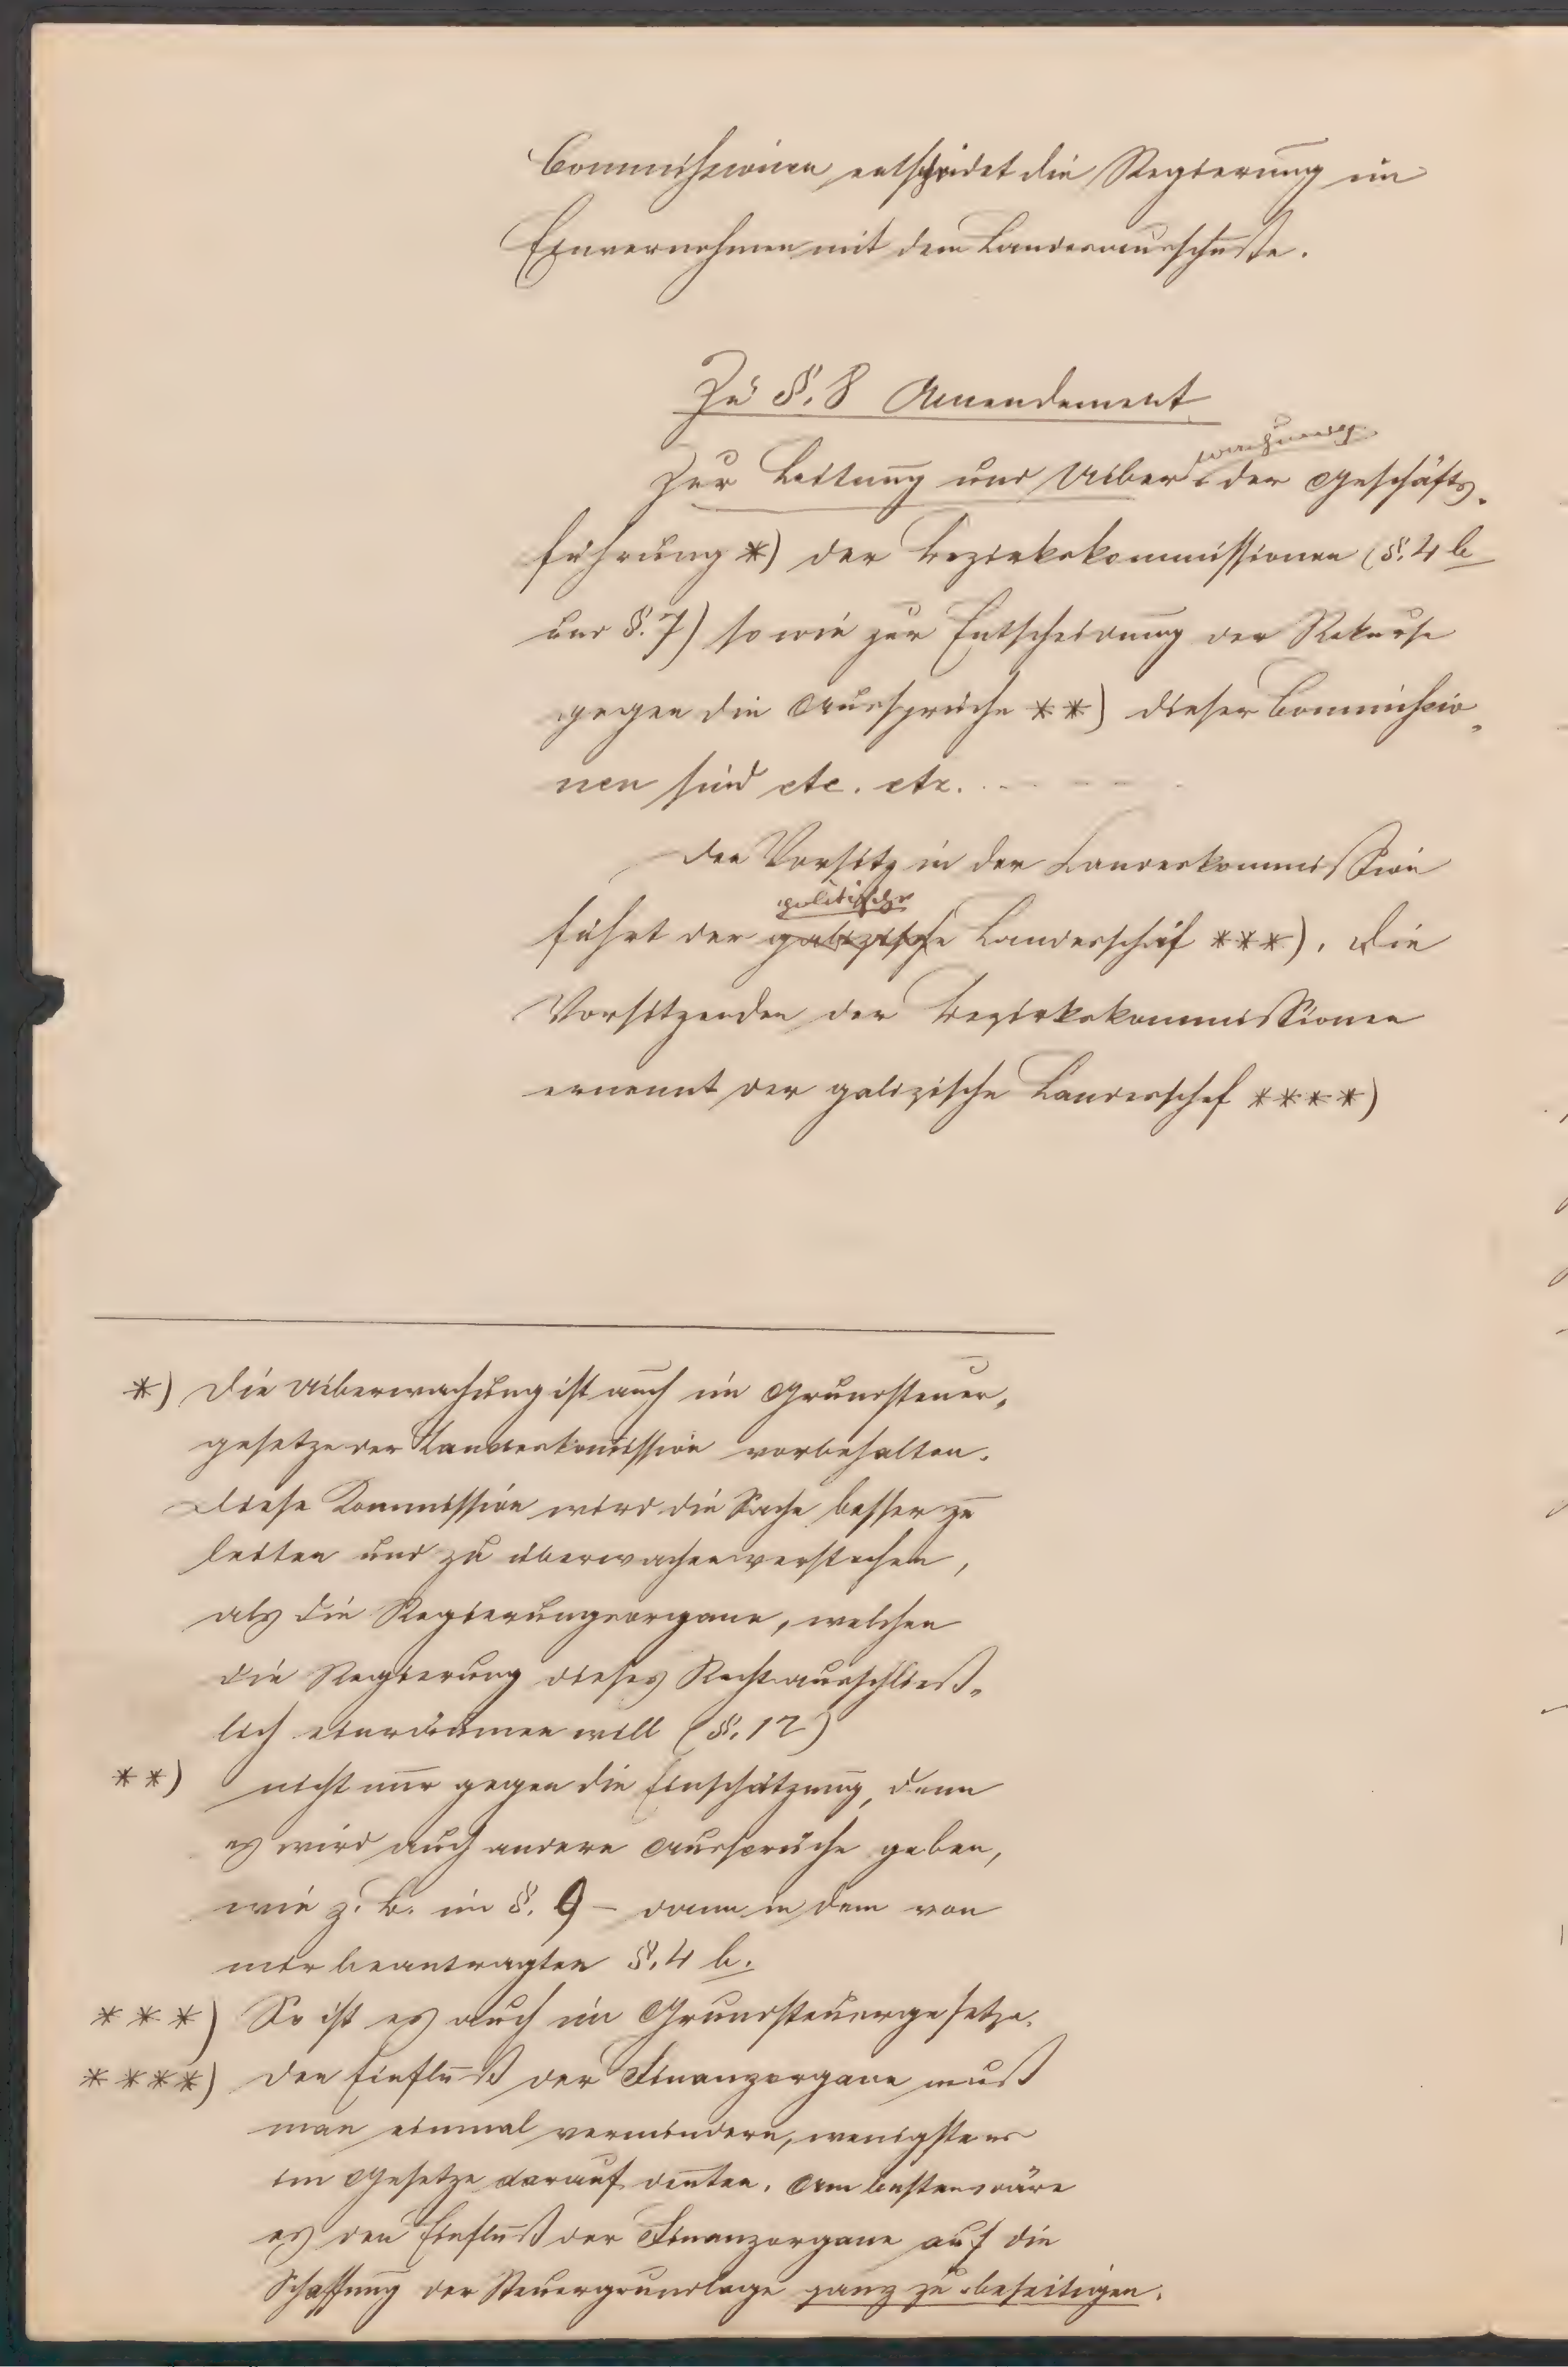 Commission entscheidet die Regierung im
Einvernehmen mit dem Landesausschuße.
Zu §. 8 Amendement
wachung
Zur Leitung und Uiber der Geschäfts-
führung *) der Bezirkskommissionen (§. 4 b
und §. 7) sowie zur Entscheidung der Rekurse
gegen die Aussprüche **) dieser Commissio-
nen sind etc. etc. . - - - -
Den Vorsitz in der Landeskommission
politische
führt der galizische Landeschef ***). Die
Vorsitzenden der Bezirkskommissionen
ernennt der galizische Landeschef ****)
*) Die Uiberwachung ist auch im Grundsteuer-
gesetze der Landeskommission vorbehalten.
Diese Kommission wird die Sache besser zu
leiten und zu überwachen verstehen,
als die Regierungsorgane, welchen
die Regierung dieses Recht ausschließ-
lich einräumen will (§. 12)
**) nicht nur gegen die Einschätzung, denn
es wird auch andere Aussprüche geben,
wie z. B. im §. 9 – dann in dem von
mir beantragten §. 4 b.
***) So ist es auch im Grundsteuergesetze.
****) Den Einfluß der Finanzorgane muß
man einmal vermindern, wenigstens
im Gesetze darauf deuten. Am besten wäre
es den Einfluß der Finanzorgane auf die
Schaffung der Steuergrundlage ganz zu beseitigen.